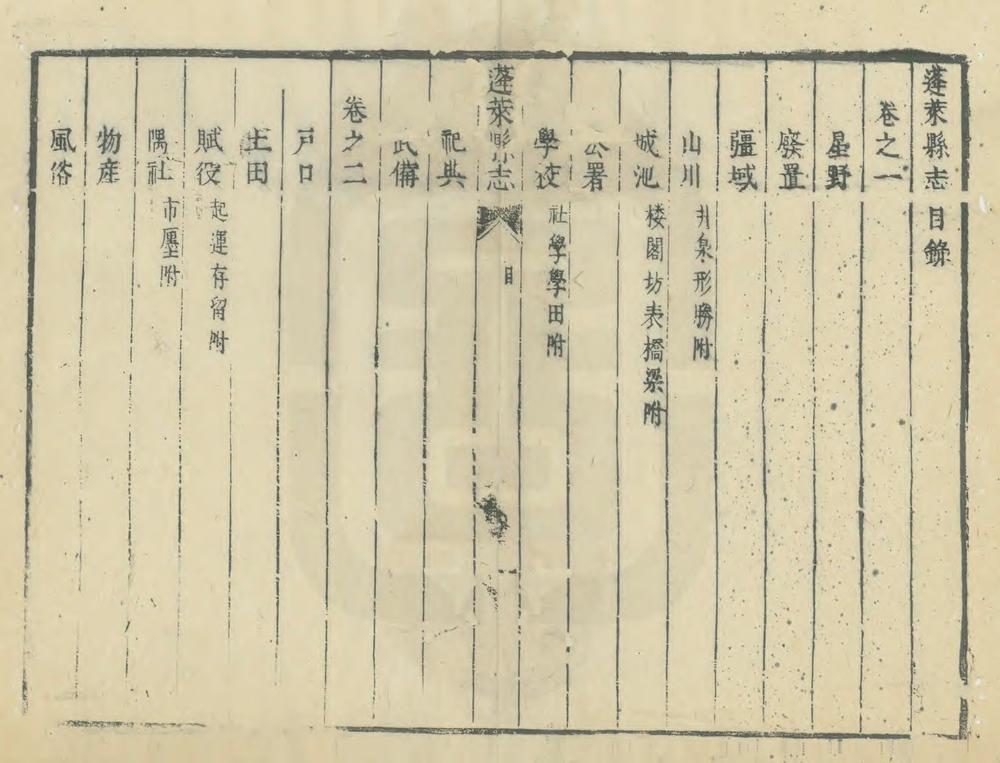 蓬萊縣志目錄
卷之一
星野
廢置
疆域
山川 井泉形勝附
城池 楼閣坊表橋梁附
公署
學校 社學學田附
蓬萊縣志 目 一
祀典
武備
卷之二
戸口
土田
賦役 起運存留附
隅社 市廛附
物産
風俗